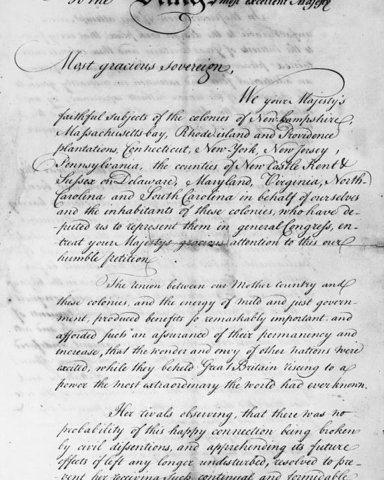 To the King's most excellent Majesty
Most gracious Sovereign,
We your Majesty's
faithful subjects of the colonies of New-hampshire,
Massachusetts-bay, Rhode island and Providence
plantations, Connecticut, New-York, New Jersey,
Pennsylvania, the counties of New Castle Kent &
Sussex on Delaware, Maryland, Virginia, North-
Carolina and South Carolina in behalf of ourselves
and the inhabitants of these colonies, who have de-
puted us to represent them in general Congress, en-
treat your Majestys gracious attention to this our
humble petition.
The union between our Mother Country and
these colonies, and the energy of mild and just govern-
ment, produced benefits so remarkably important, and
afforded such an assurance of their permanency and
increase, that the wonder and envy of other nations were
excited, while they beheld Great Britain riseing to a
power the most extraordinary the world had ever known.
Her rivals observing, that there was no
probability of this happy connection being broken
by civil dissentions, and apprehending its future
effects if left any longer undisturbed, resolved to pre-
vent her receiving such continual and formidable